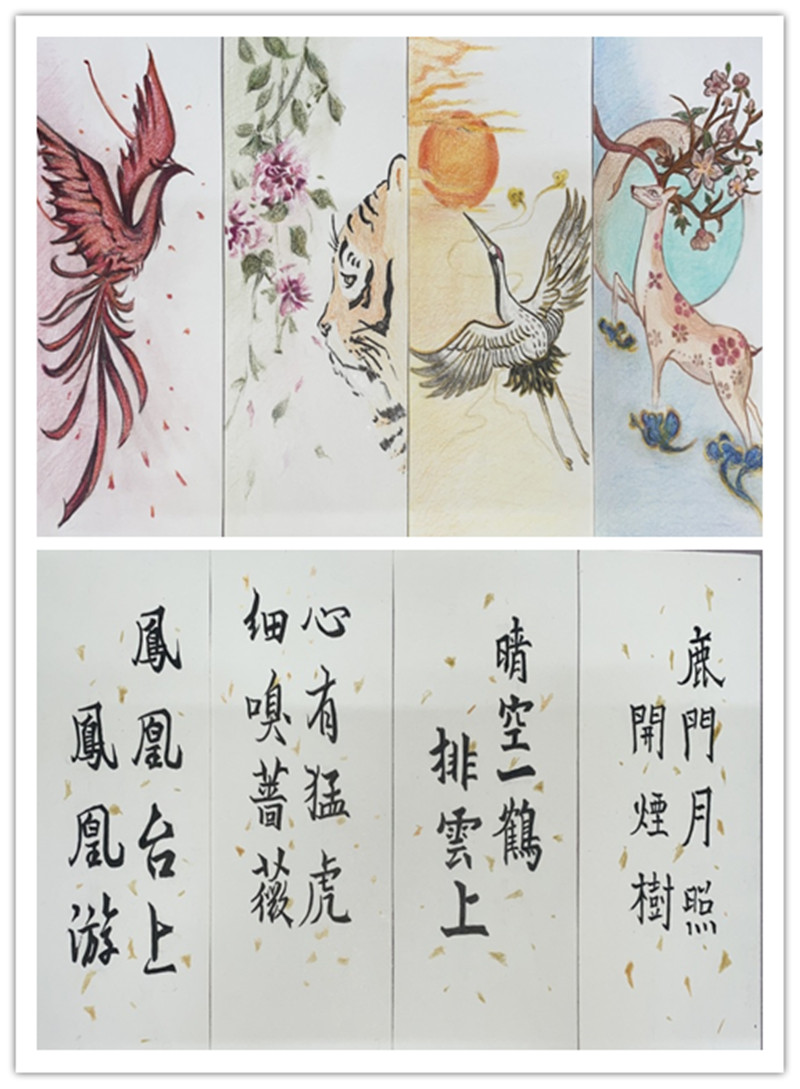 鳳凰台上
鳳凰游
心有猛虎
细嗅薔薇
晴空一鶴
排雲上
鹿門月照
開煙樹